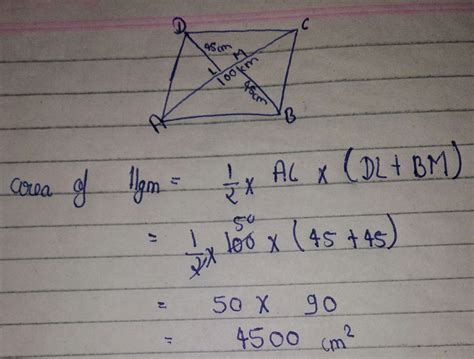 D C
45cm M
L 100cm 45cm
A B
area of ||gm = 1/2 × AC × (DL + BM)
50
= 1/2 × 100 × (45 + 45)
= 50 × 90
= 4500 cm²